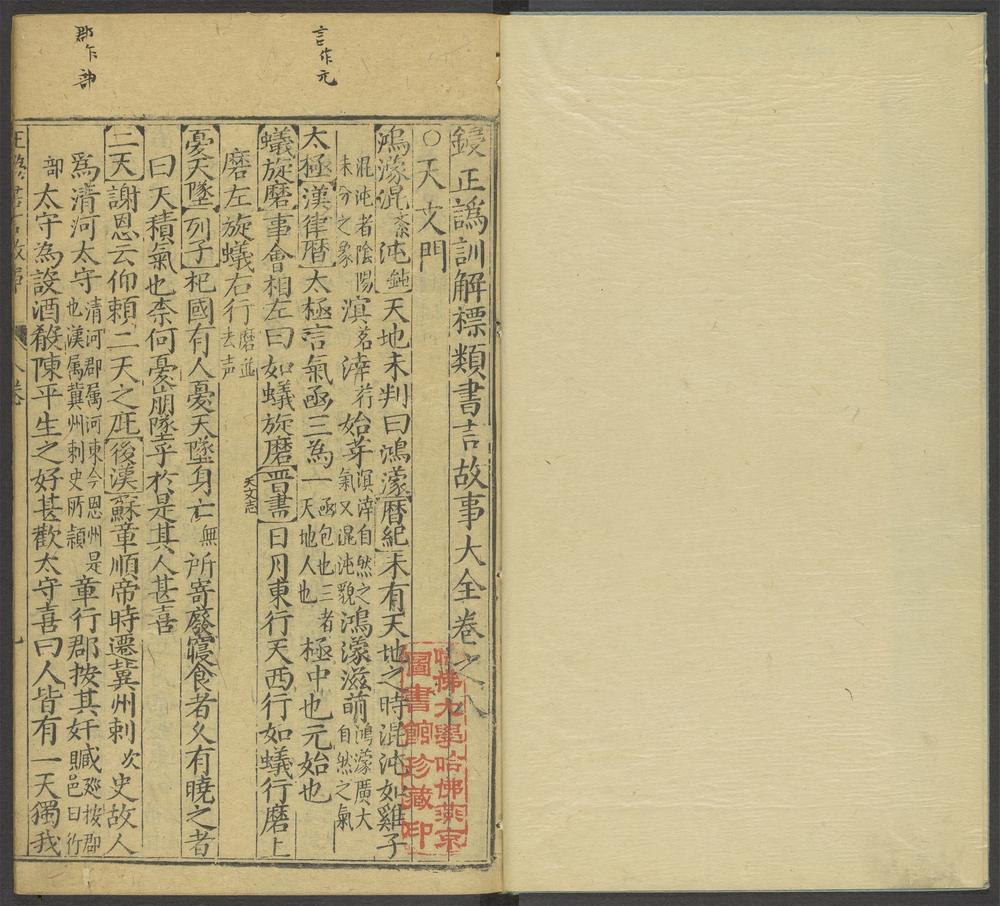 言作元
郡作部
鋟正譌訓解標類書言故事大全卷之八
○天文門
鴻濛混吞沌鈍天地未判曰鴻濛曆紀未有天地之時混沌如雞子
混沌者陰陽未分之象溟茗涬荇始芽溟涬自然之氣又混沌貌鴻濛滋萌鴻濛廣大自然之氣
太極漢律曆太極言氣函三為一函包也三者天地人也極中也元始也
蟻旋磨事會相左曰如蟻旋磨晉書天文志日月東行天西行如蟻行磨上
磨左旋蟻右行磨並去声
憂天墜列子杞國有人憂天墜身亡無所寄廢寢食者久有曉之者
曰天積氣也柰何憂崩墜乎於是其人甚喜
二天謝恩云仰賴二天之庇後漢蘇章順帝時遷冀州刺次史故人
爲清河太守清河郡属河東今恩州是也漢属冀州刺史所領章行郡按其奸贓廵按郡邑曰行
部太守為設酒殽陳平生之好甚歡太守喜曰人皆有一天獨我
卷
九
哈佛大學哈佛燕京
圖書館珍藏印